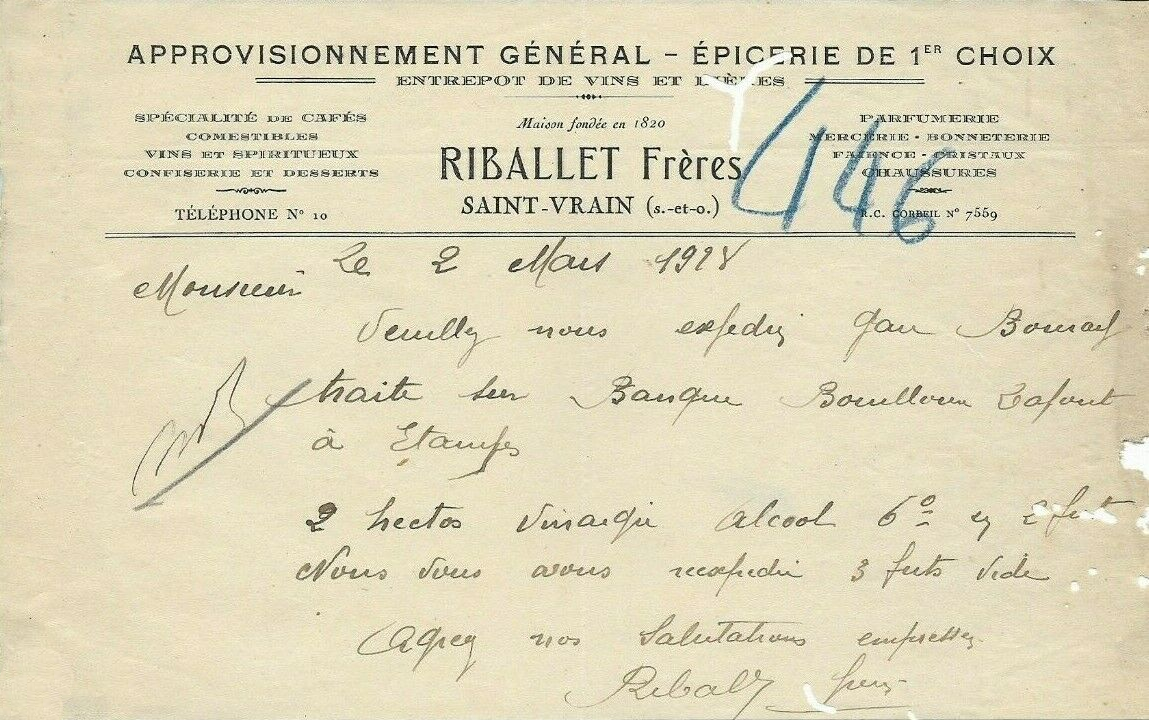 APPROVISIONNEMENT GÉNÉRAL – ÉPICERIE DE 1ER CHOIX
ENTREPOT DE VINS ET BIÈRES
SPÉCIALITÉ DE CAFÉS
COMESTIBLES
VINS ET SPIRITUEUX
CONFISERIE ET DESSERTS
TÉLÉPHONE N° 10
Maison fondée en 1820
RIBALLET Frères
SAINT-VRAIN (S.-ET-O.)
PARFUMERIE
MERCERIE - BONNETERIE
FAIENCE - CRISTAUX
CHAUSSURES
R.C. CORBEIL N° 7559
446
Le 2 Mars 1928
Monsieur
Veuillez nous expedier par
traite sur Banque Bouilloux Lafont
à Etampes
2 hectos Vinaigre alcool 6° en 2 futs
Nous vous avons reexpedier 3 futs vide
Agreez nos Salutations empressees
Riballet freres